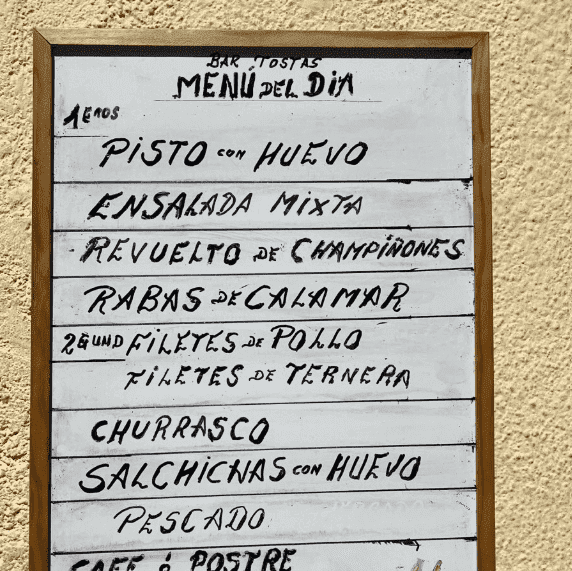 BAR TOSTAS
MENÚ DEL DiA
1EROS
PiSTO CON HUEVO
ENSALADA MiXTA
REVUELTO DE CHAMPIÑONES
RABAS DE CALAMAR
2GUND FiLETES DE POLLO
FiLETES DE TERNERA
CHURRASCO
SALCHICHAS CON HUEVO
PESCADO
CAFE ó POSTRE